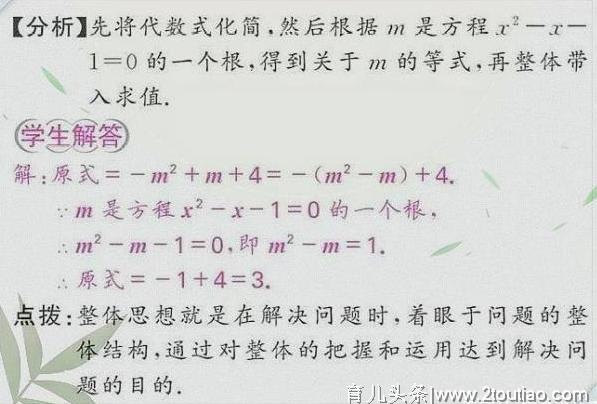 【分析】先将代数式化简,然后根据 m 是方程 x²－x－
1=0 的一个根,得到关于 m 的等式,再整体带
入求值.
学生解答
解:原式=－m²+m+4=－(m²－m)+4.
∵m 是方程 x²－x－1=0 的一个根,
∴m²－m－1=0,即 m²－m=1.
∴原式=－1+4=3.
点拨:整体思想就是在解决问题时,着眼于问题的整
体结构,通过对整体的把握和运用达到解决问
题的目的.
育儿头条|www.2toutiao.com